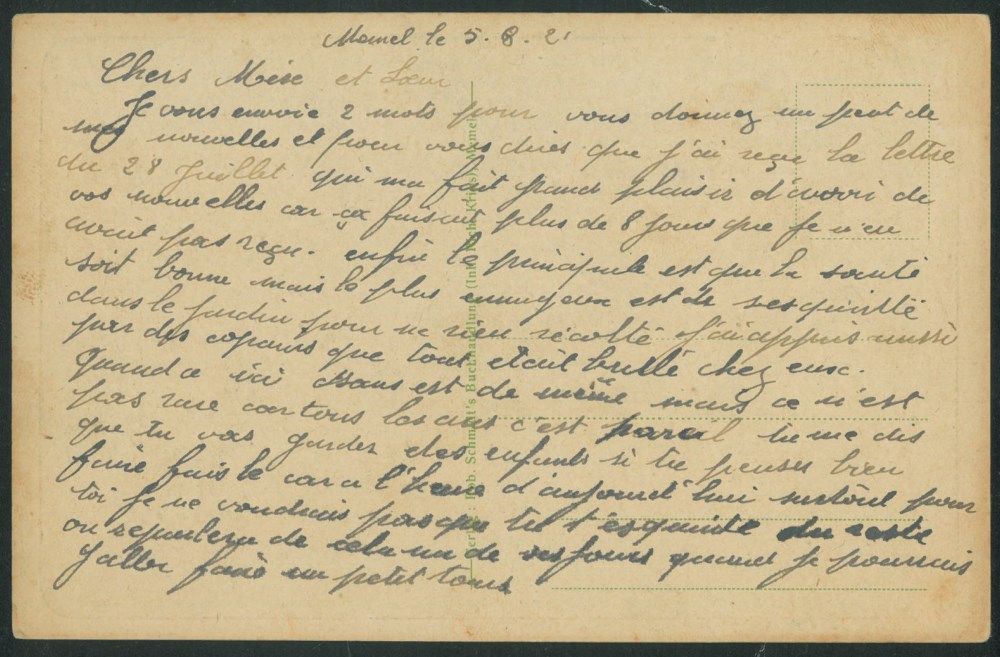 Memel le 5.8.21
Chers Mère et Sœur
Je vous envoie 2 mots pour vous donnez un peut de
mes nouvelles et pour vous dires que j'ai reçu la lettre
du 28 Juillet qui ma fait grand plaisir d'avoir de
vos nouvelles car ça faisait plus de 8 jours que je n'en
avait pas reçu. enfin le principale est que la santé
soit bonne mais le plus ennuyeux est de s'esquinté
dans le jardin pour ne rien récolté j'ai appris aussi
par des copains que tout etait brulé chez eux.
quand a ici dans est de même mais ce n'est
pas rare car tous les ans c'est pareil tu me dis
que tu vas garder des enfants si tu penses bien
faire fais le car a l'heure d'aujourd'hui surtout pour
toi je ne voudrais pas que tu t'esquinte du reste
on reparlera de cela un de ses jours quand je pourrais
y aller faire un petit tour
Rob. Schmidt's Buchhandlung (Inh. Richt. Krips) Memel